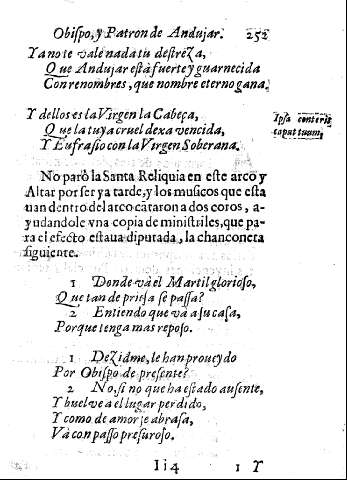 Obiſpo, y Patron de Andujar. 252
Ya no te vale nada tu deſtreza,
Que Andujar eſtà fuerte y guarnecida
Con renombres, que nombre eterno gana.
Y dellos es la Virgen la Cabeça,
Que la tuya cruel dexa vencida,
Y Eufraſio con la Virgen Soberana.
Ipſa conteret
caput tuum.
No parò la Santa Reliquia en eſte arco y
Altar por ſer ya tarde, y los muſicos que eſta
uan dentro del arco cãtaron a dos coros, a-
yudandole vna copia de miniſtriles, que pa-
ra el efecto eſtaua diputada, la chançoneta
ſiguiente.
1 Donde và el Martil glorioſo,
Que tan de prieſa ſe paſſa?
2 Entiendo que và a ſu caſa,
Porque tenga mas repoſo.
1 Dezidme, le han proueydo
Por Obiſpo de preſente?
2 No, ſi no que ha eſtado auſente,
Y buelue a el lugar perdido,
Y como de amor ſe abraſa,
Và con paſſo preſuroſo.
Ii4 1 Y